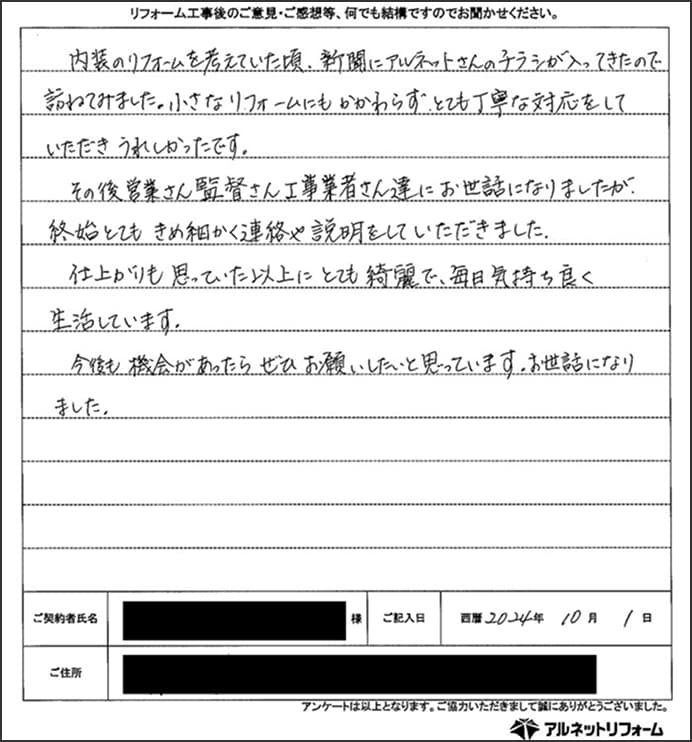 リフォーム工事後のご意見・ご感想等、何でも結構ですのでお聞かせください。
内装のリフォームを考えていた頃、新聞にアルネットさんのチラシが入ってきたので
訪ねてみました。小さなリフォームにもかかわらず、とても丁寧な対応をして
いただきうれしかったです。
その後営業さん監督さん工事業者さん達にお世話になりましたが、
終始とてもきめ細かく連絡や説明をしていただきました。
仕上がりも思っていた以上にとても綺麗で、毎日気持ち良く
生活しています。
今後も機会があったらぜひお願いしたいと思っています。お世話になり
ました。
ご契約者氏名 様 ご記入日 西暦2024年 10月 1日
ご住所
アンケートは以上となります。ご協力いただきまして誠にありがとうございました。
アルネットリフォーム